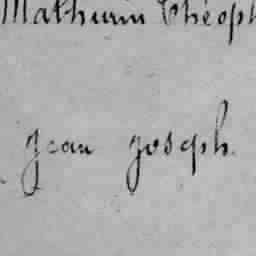 Mathurin Théoph
Jean Joseph.